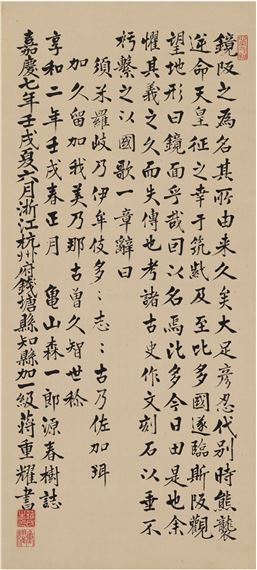 鏡阪之為名其所由来久矣大足彦忍代別時熊襲
逆命天皇征之幸于筑紫及至比多國遂臨斯阪觀
望地形曰鏡面乎哉因以名焉比多今日田是也余
懼其義之久而失傳也考諸古史作文刻石以垂不
朽繫之以國歌一章辭曰
須米羅岐乃伊牟伎多:志:古乃佐加珥
加久留加我美乃那古曽久智世祢
享和二年壬戌春正月 亀山森一郎源春樹誌
嘉慶七年壬戌夏六月浙江杭州府錢塘縣知縣加一級蒋重耀書